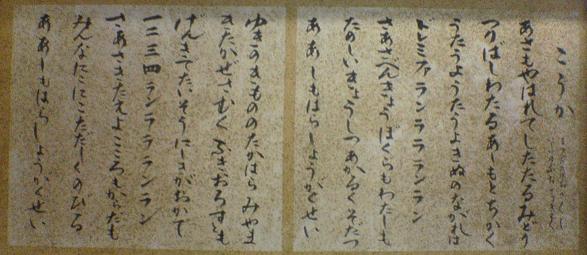 こうか
あさもやはれてしたたるみどり
つりばしわたるあしもとちかく
うたうようたうよきぬのながれは
ドレミファランラララランラン
さあさべんきょうぼくらもわたしも
たのしいきょうしつあかるくそだつ
ああしもはらしょうがくせい
ゆきのきもののたかはらみやま
きたかぜさむくふきおろすとも
げんきでたいそうにじがおかで
一二三四ランララランラン
さあさきたえよこころもからだも
みんなにこにこただしくのびる
ああしもはらしょうがくせい